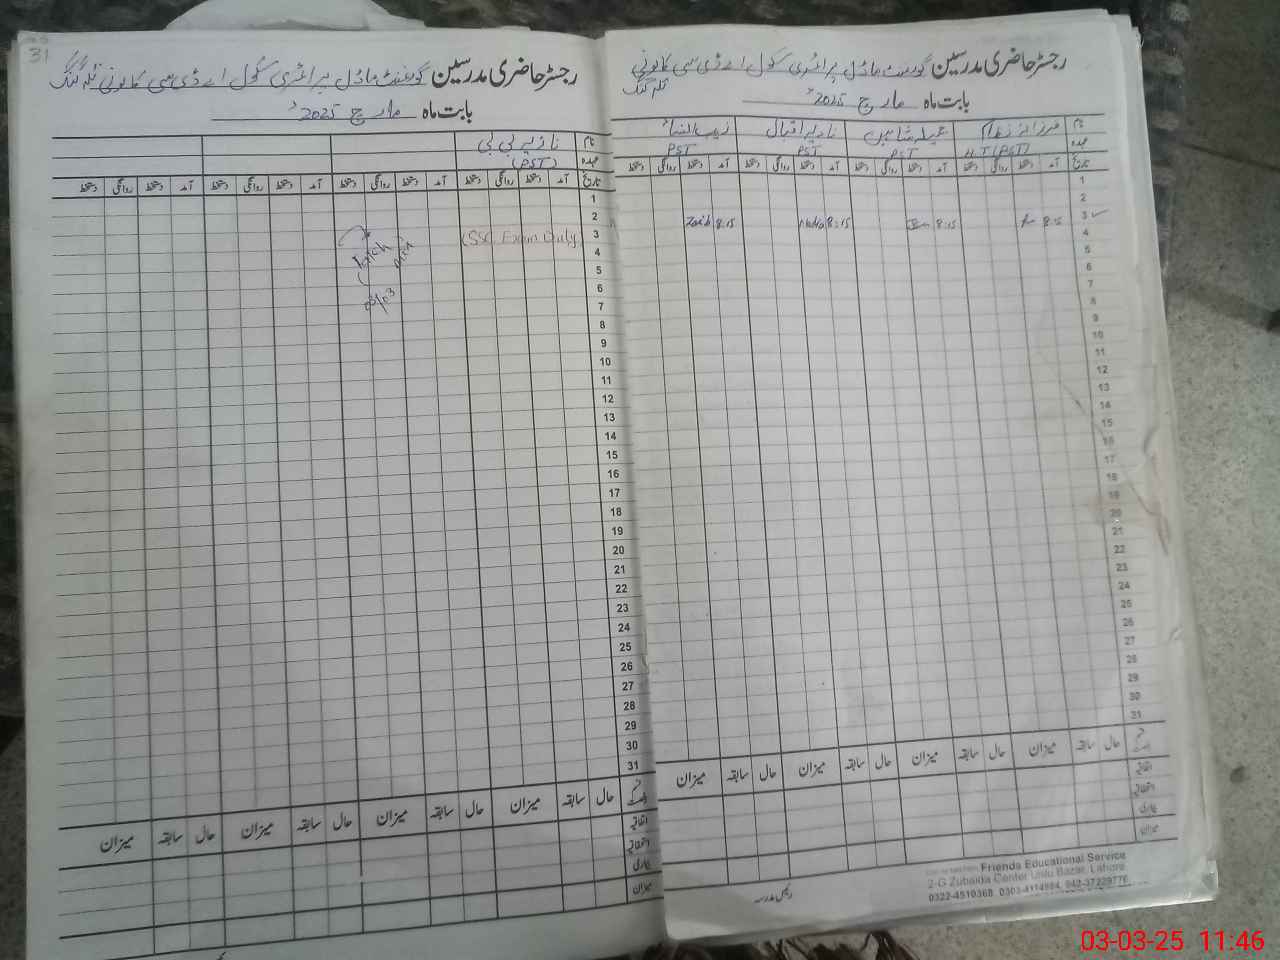 رجسٹر حاضری مدرسین گورنمنٹ ماڈل پرائمری سکول اے ڈی سی کالونی
تلہ گنگ
بابت ماہ مارچ 2025ء
نام فرزانہ جمیلہ شاہین نادیہ اقبال زیب النساء
عہدہ H.T (PST) PST PST PST
تاریخ آمد دستخط روانگی دستخط آمد دستخط روانگی دستخط آمد دستخط روانگی دستخط آمد دستخط روانگی
1
2
3 8:15 8:15 Nadia 8:15 Zaib 8:15
4
5
6
7
8
9
10
11
12
13
14
15
16
17
18
19
20
21
22
23
24
25
26
27
28
29
30
31
حال سابقہ میزان حال سابقہ میزان حال سابقہ میزان حال سابقہ میزان
اتفاقیہ
استحقاقیہ
بیماری
میزان
رئیس مدرسہ
Friends Educational Service
2-G Zubaida Center Urdu Bazar, Lahore
0322-4510368, 0303-4114884, 042-37239776
31
رجسٹر حاضری مدرسین گورنمنٹ ماڈل پرائمری سکول اے ڈی سی کالونی تلہ گنگ
بابت ماہ مارچ 2025ء
نام نازیہ بی بی
عہدہ (PST)
تاریخ آمد دستخط روانگی دستخط آمد دستخط روانگی دستخط آمد دستخط روانگی دستخط آمد دستخط روانگی دستخط
1
2
3 (SSC Exam Duty
4
5
6
03/03
7
8
9
10
11
12
13
14
15
16
17
18
19
20
21
22
23
24
25
26
27
28
29
30
31
حال سابقہ میزان حال سابقہ میزان حال سابقہ میزان حال سابقہ میزان
اتفاقیہ
استحقاقیہ
بیماری
میزان
03-03-25 11:46